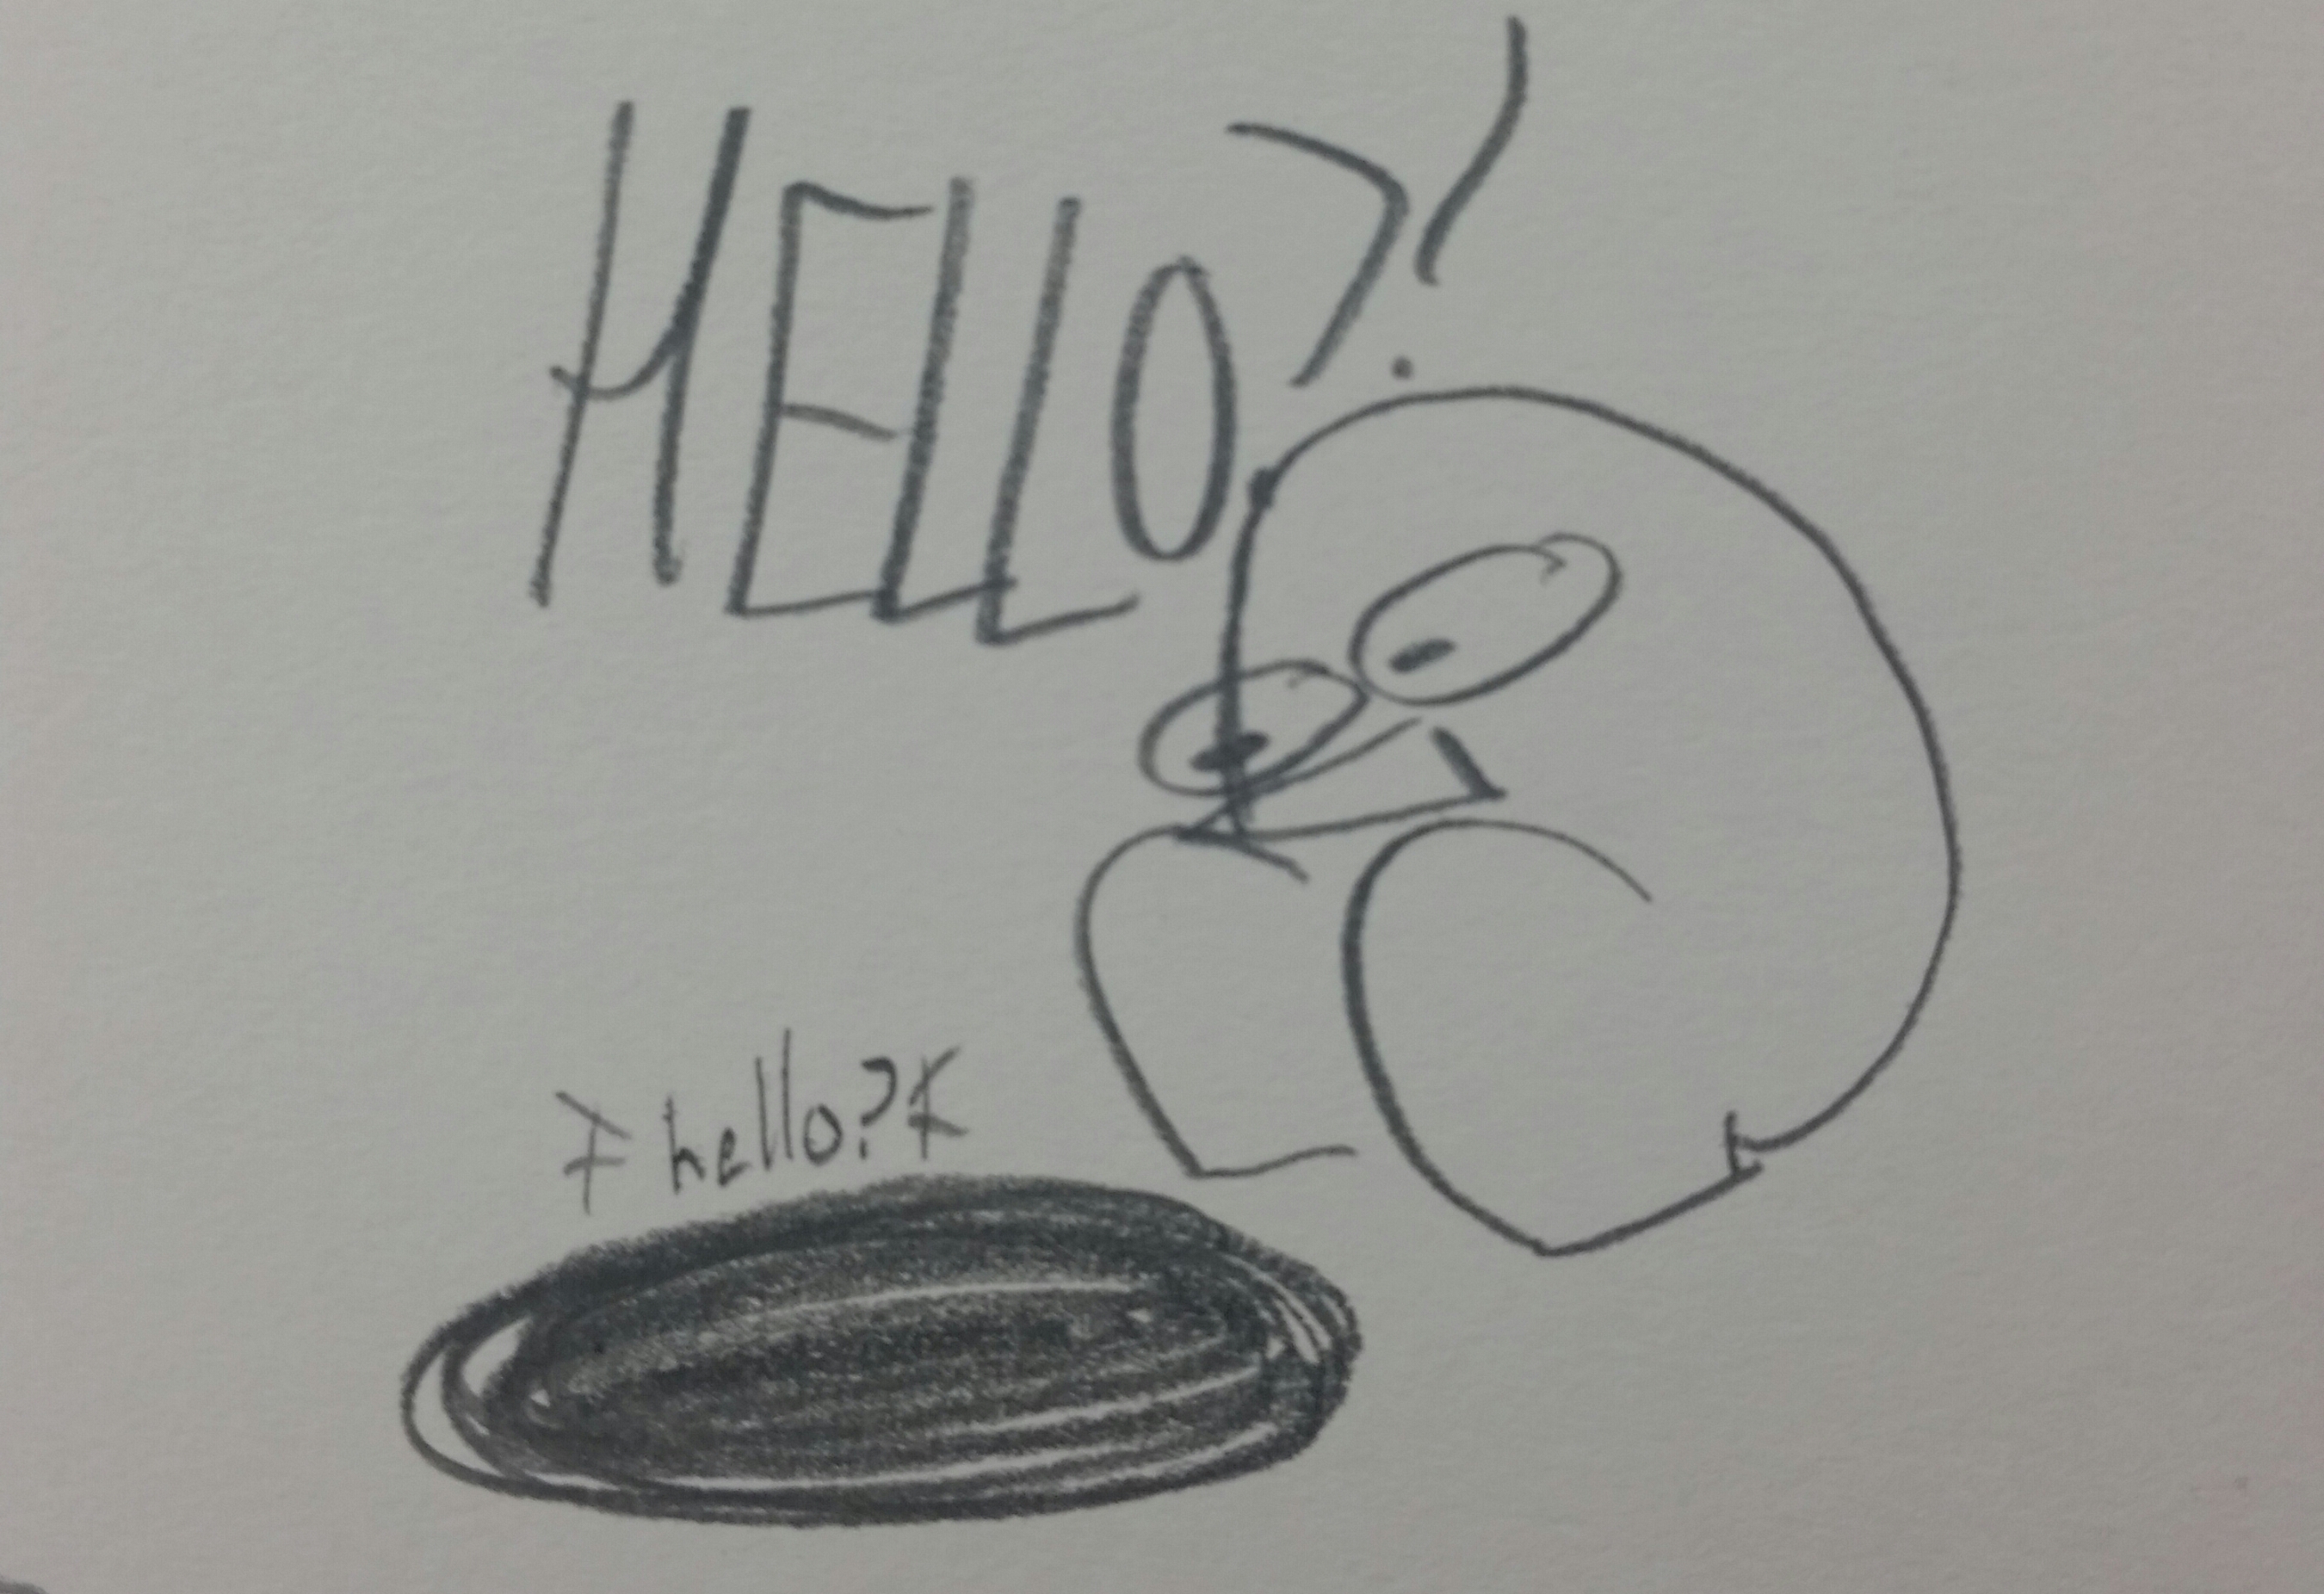 HELLO?!
hello?